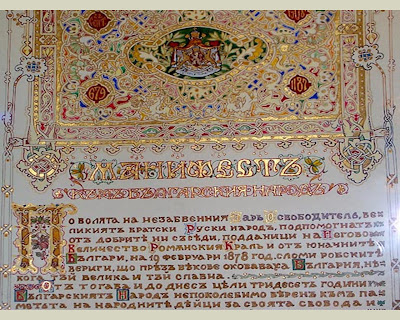 1879
МАНИФЕСТЪ
КЪМЪ БЪЛГАРСКИЯ НАРОДЪ
ПО ВОЛЯТА НА НЕЗАБВЕННИЯ ЦАРЬ ОСВОБОДИТЕЛЬ, ВЕ-
ЛИКИЯТЪ БРАТСКИ РУСКИ НАРОДЪ, ПОДПОМОГНАТЪ
ОТЪ ДОБРИТѢ НИ СЪСѢДИ, ПОДДАНИЦИ НА НЕГОВО
ВЕЛИЧЕСТВО РОМЪНСКИЯ КРАЛЬ И ОТЪ ЮНАЧНИТѢ
БЪЛГАРИ, НА 19 ФЕВРУАРИ 1878 ГОД. СЛОМИ РОБСКИТѢ
ВЕРИГИ, ЩО ПРѢЗЪ ВѢКОВЕ ОКОВАВАХА БЪЛГАРИЯ, НѢ-
КОГА ТЪЙ ВЕЛИКА И ТЪЙ СЛАВНА.
ОТЪ ТОГАВА И ДО ДНЕСЪ ЦѢЛИ ТРИДЕСЕТЪ ГОДИНИ
БЪЛГАРСКИЯТЪ НАРОДЪ НЕПОКОЛЕБИМО ВѢРЕНЪ КЪМЪ ПА-
МЕТЬТА НА НАРОДНИТѢ ДѢЙЦИ ЗА СВОЯТА СВОБОДА И